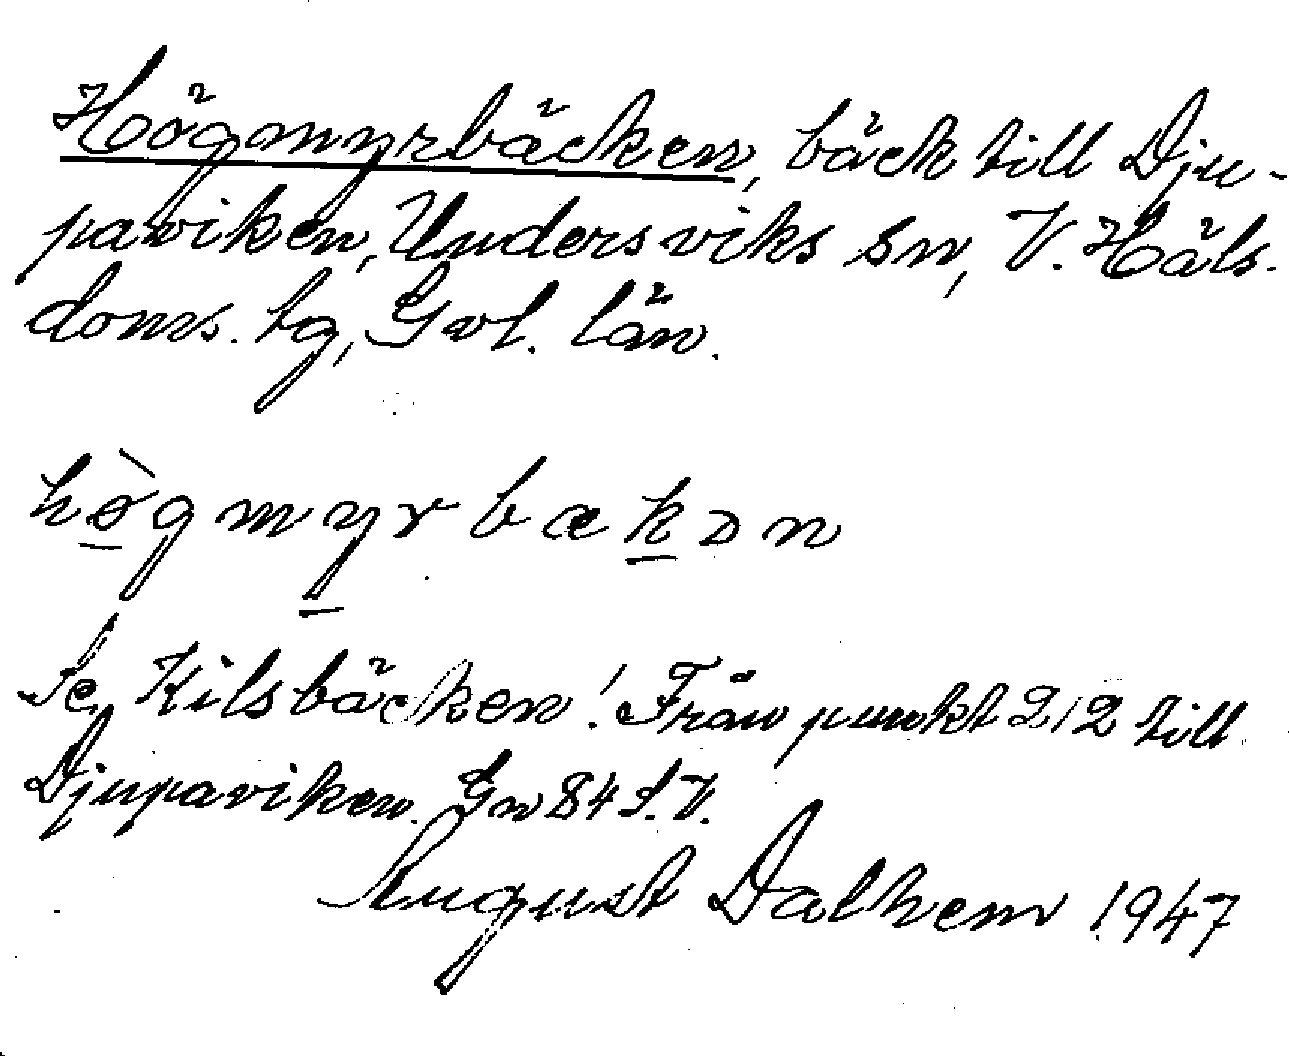 Högmyrbäcken, bäck till Dju-
paviken, Undersviks sn, V. Häls.
doms. tg, Gvl. län.
hø̀gmyrbækən
Se Kilsbäcken! Från punkt 212 till
Djupaviken. Gn 84 S.V.
August Dalhem 1947